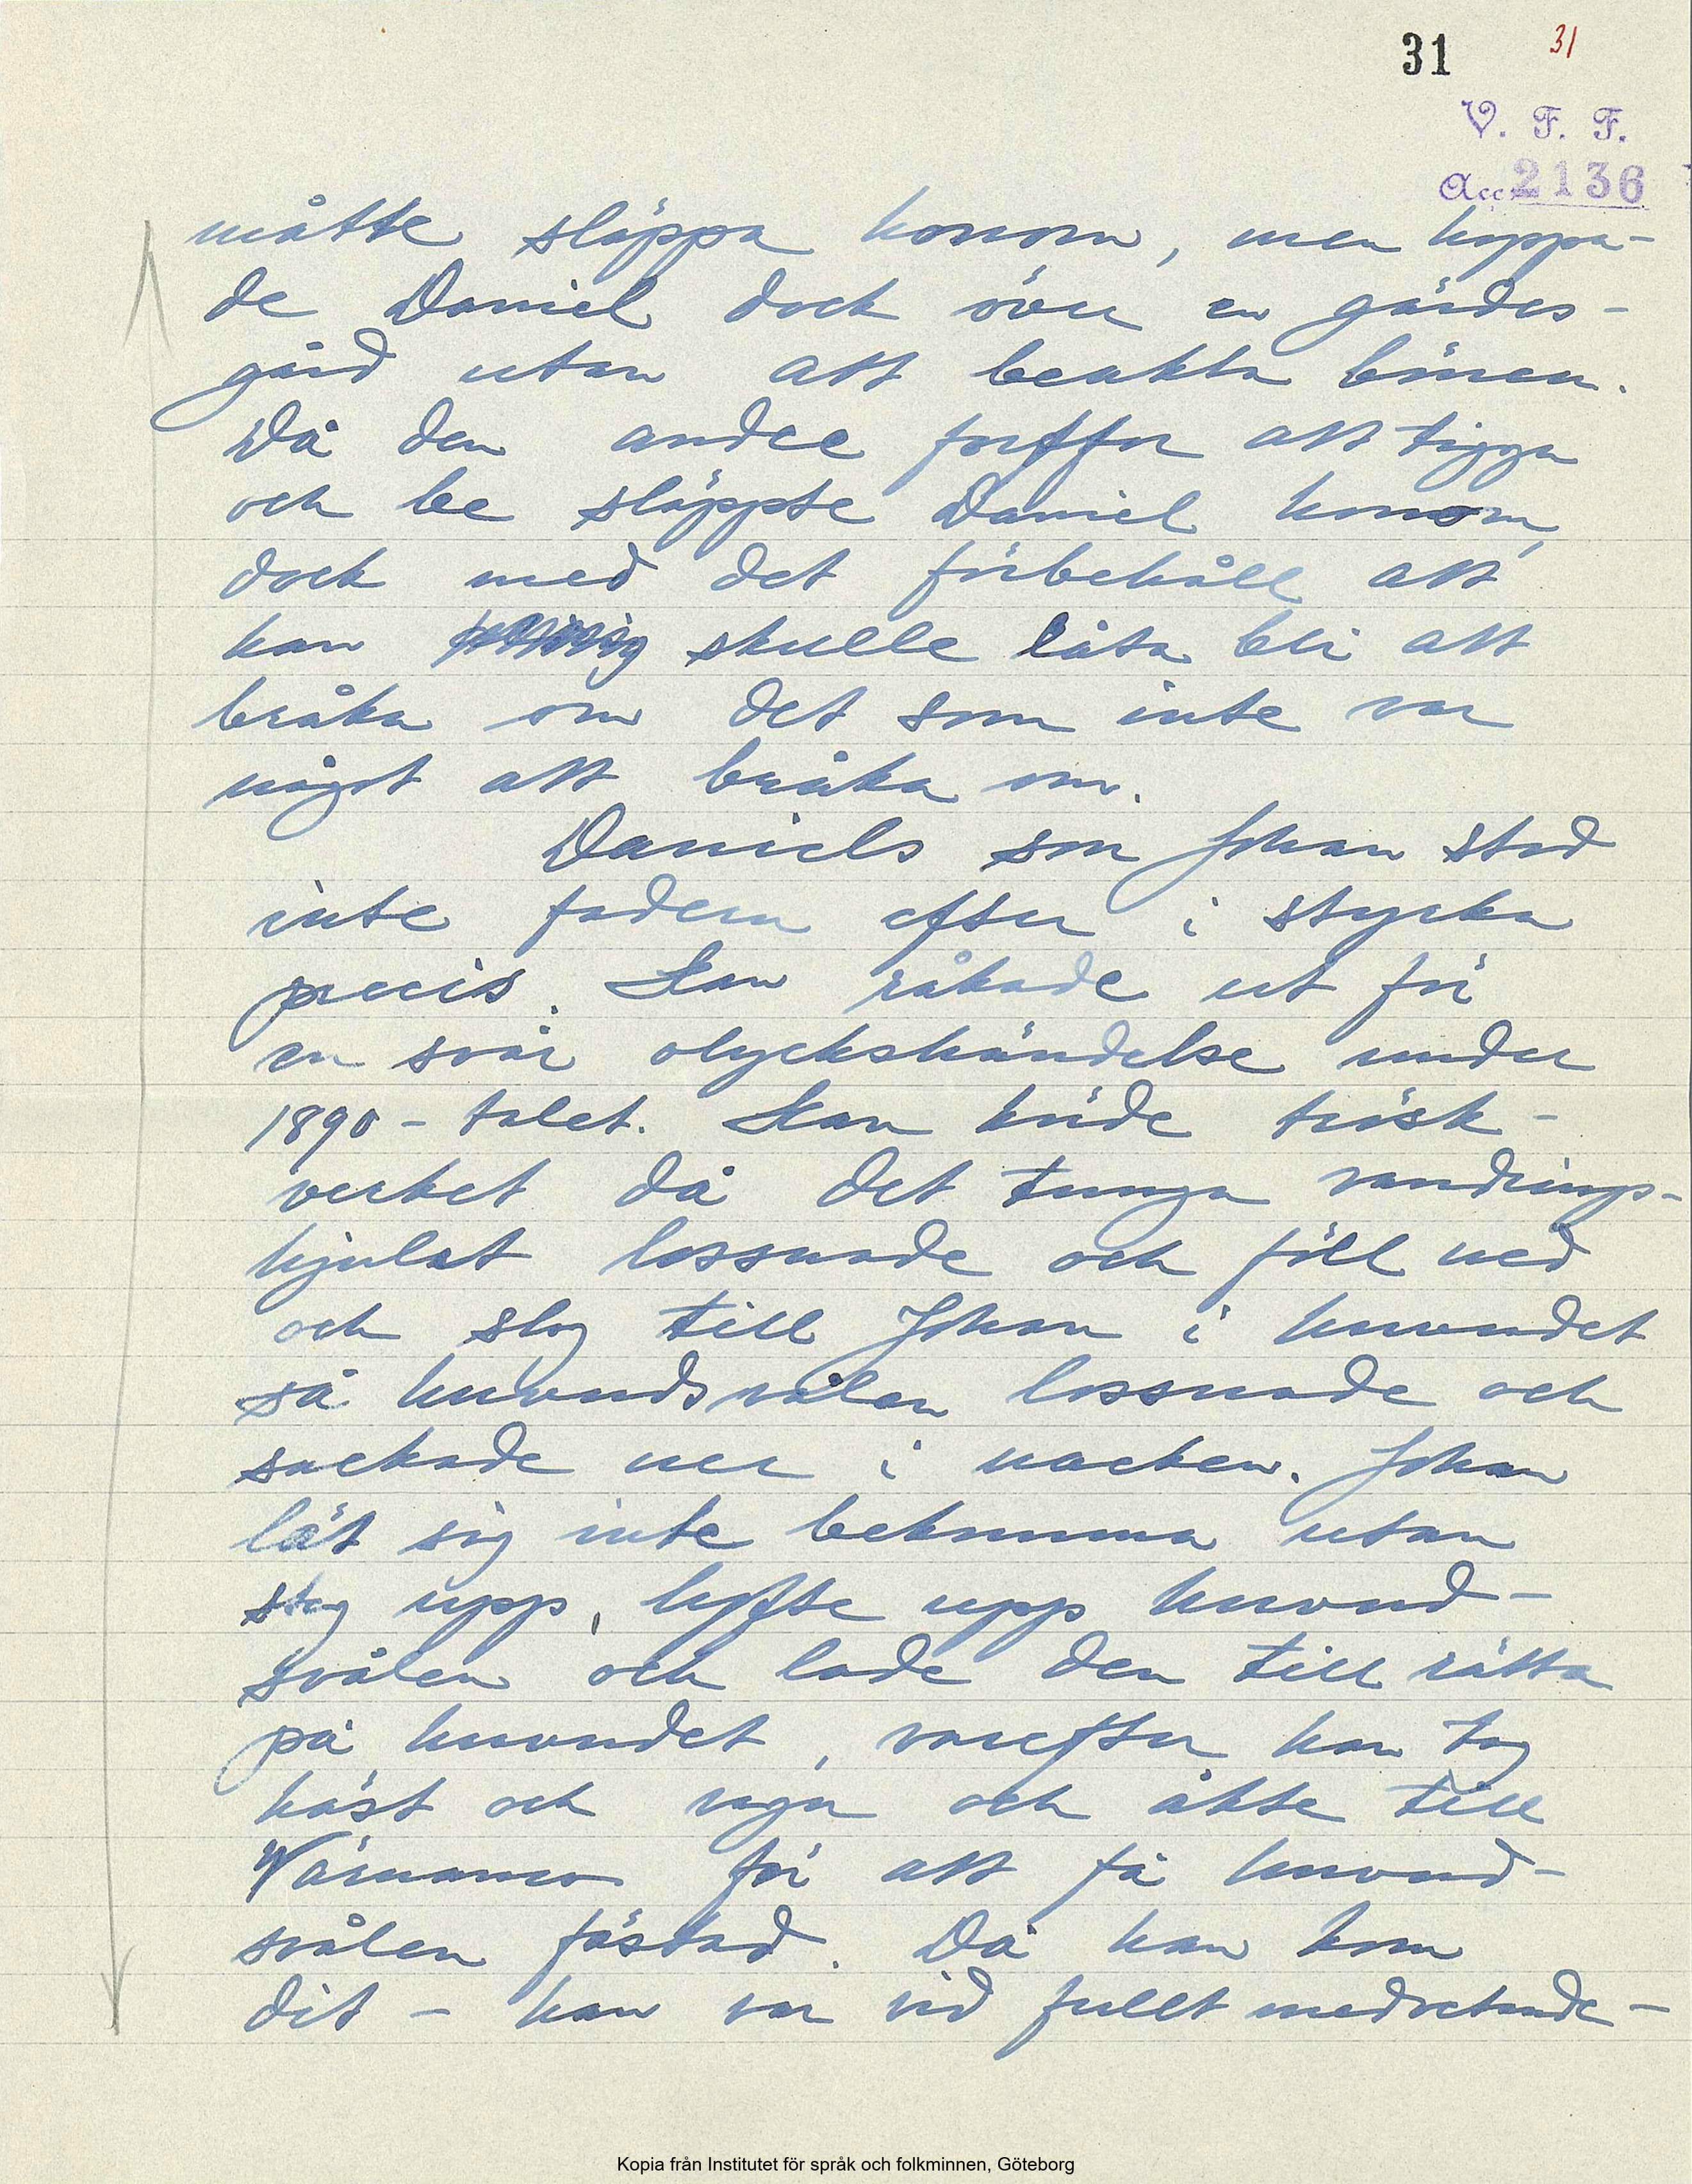 31 31
V. F. F.
Acc. 2136
måtte släppa honom, men hoppa-
de Daniel dock över en gärdes-
gård utan att beakta bönen.
Då den andre fortfor att tigga
och be släppte Daniel honom,
dock med det förbehåll att
han skulle låta bli att
bråka om det som inte var
något att bråka om.
Daniels son Johan stod
inte fadern efter i styrka
precis. Han råkade ut för
en svår olyckshändelse under
1890-talet. Han körde trösk-
verket då det tunga vandrings-
hjulet lossnade och föll ned
och slog till Johan i huvudet
så huvudsvålen lossnade och
sackade ner i nacken. Johan
lät sig inte bekomma utan
steg upp, lyfte upp huvud-
svålen och lade den till rätta
på huvudet, varefter han tog
häst och vagn och åkte till
Värnamo för att få huvud-
svålen fästad. Då han kom
dit - han var vid fullt medvetande -
Kopia från Institutet för språk och folkminnen, Göteborg